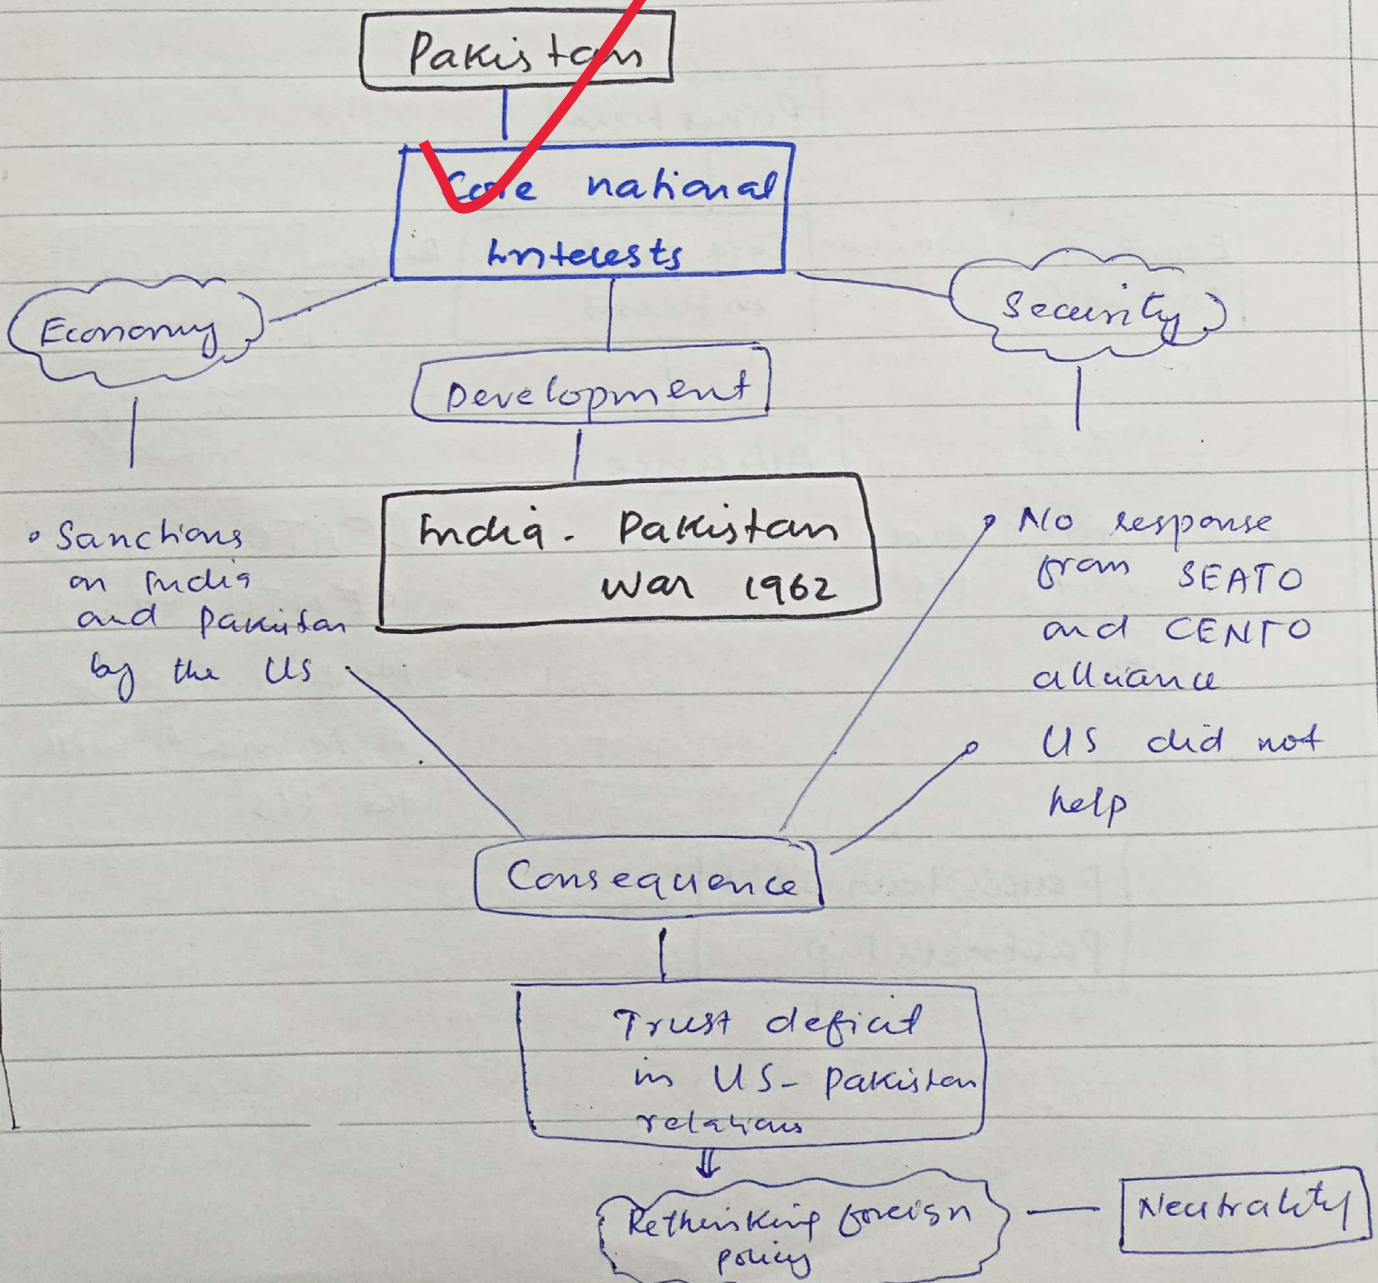 Pakistan
Core national
Interests
Economy
Security
Development
India - Pakistan
War 1962
• Sanctions
on India
and Pakistan
by the US
• No response
from SEATO
and CENTO
alliance
• US did not
help
Consequence
Trust deficit
in US - Pakistan
relations
Rethinking foreign
policy
Neutrality